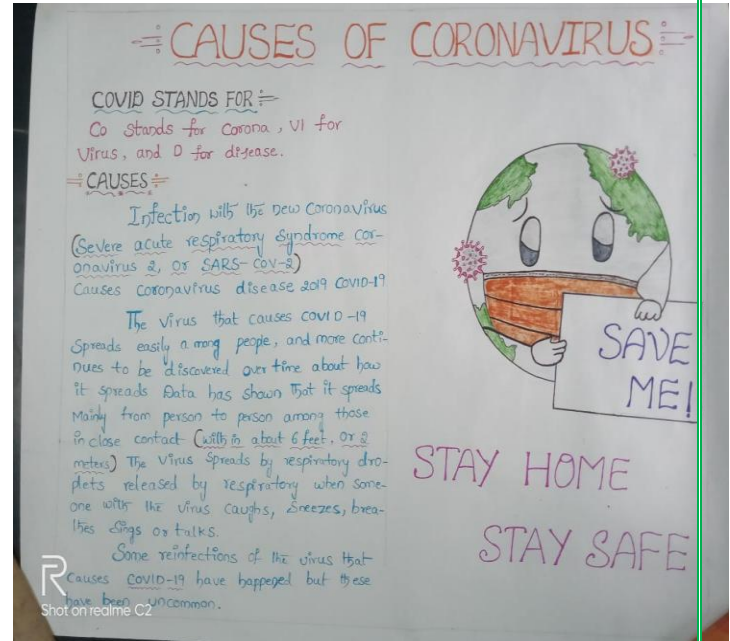 CAUSES OF CORONAVIRUS
COVID STANDS FOR
Co stands for Corona, VI for
Virus, and D for disease.
CAUSES
Infection with the new Coronavirus
(Severe acute respiratory syndrome cor-
onavirus 2, or SARS-COV-2)
Causes coronavirus disease 2019 COVID-19
The virus that causes COVID-19
Spreads easily among people, and more conti-
nues to be discovered over time about how
it spreads Data has shown that it spreads
Mainly from person to person among those
in close contact (with in about 6 feet, or 2
meters) The virus spreads by respiratory dro-
plets released by respiratory when some-
one with the virus caughs, sneezes, brea-
thes sings or talks.
Some reinfections of the virus that
Causes COVID-19 have happened but these
have been uncommon.
SAVE
ME!
STAY HOME
STAY SAFE
R
Shot on realme C2